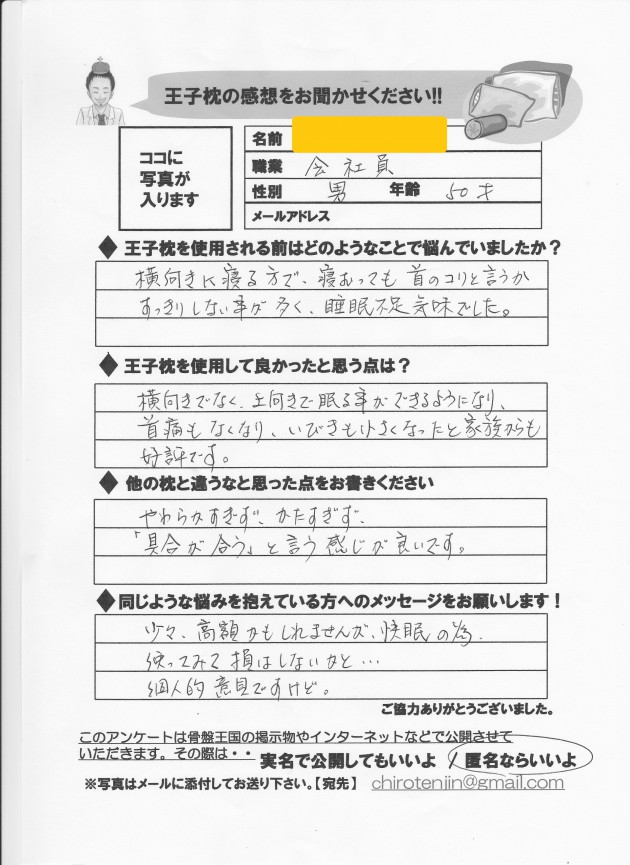 王子枕の感想をお聞かせください!!
ココに
写真が
入ります
名前
職業 会社員
性別 男 年齢 50才
メールアドレス
◆ 王子枕を使用される前はどのようなことで悩んでいましたか？
横向きに寝る方で、寝むっても首のコリと言うか
すっきりしない事が多く、睡眠不足気味でした。
◆ 王子枕を使用して良かったと思う点は？
横向きでなく、上向きで眠る事ができるようになり、
首痛もなくなり、いびきも小さくなったと家族からも
好評です。
◆ 他の枕と違うなと思った点をお書きください
やわらかすぎず、かたすぎず、
「具合が合う」と言う感じが良いです。
◆ 同じような悩みを抱えている方へのメッセージをお願いします！
少々、高額かもしれませんが、快眠の為、
使ってみて損はしないかと…
個人的意見ですけど。
ご協力ありがとうございました。
このアンケートは骨盤王国の掲示物やインターネットなどで公開させて
いただきます。その際は・・ 実名で公開してもいいよ / 匿名ならいいよ
※写真はメールに添付してお送り下さい。【宛先】 chirotenjin@gmail.com